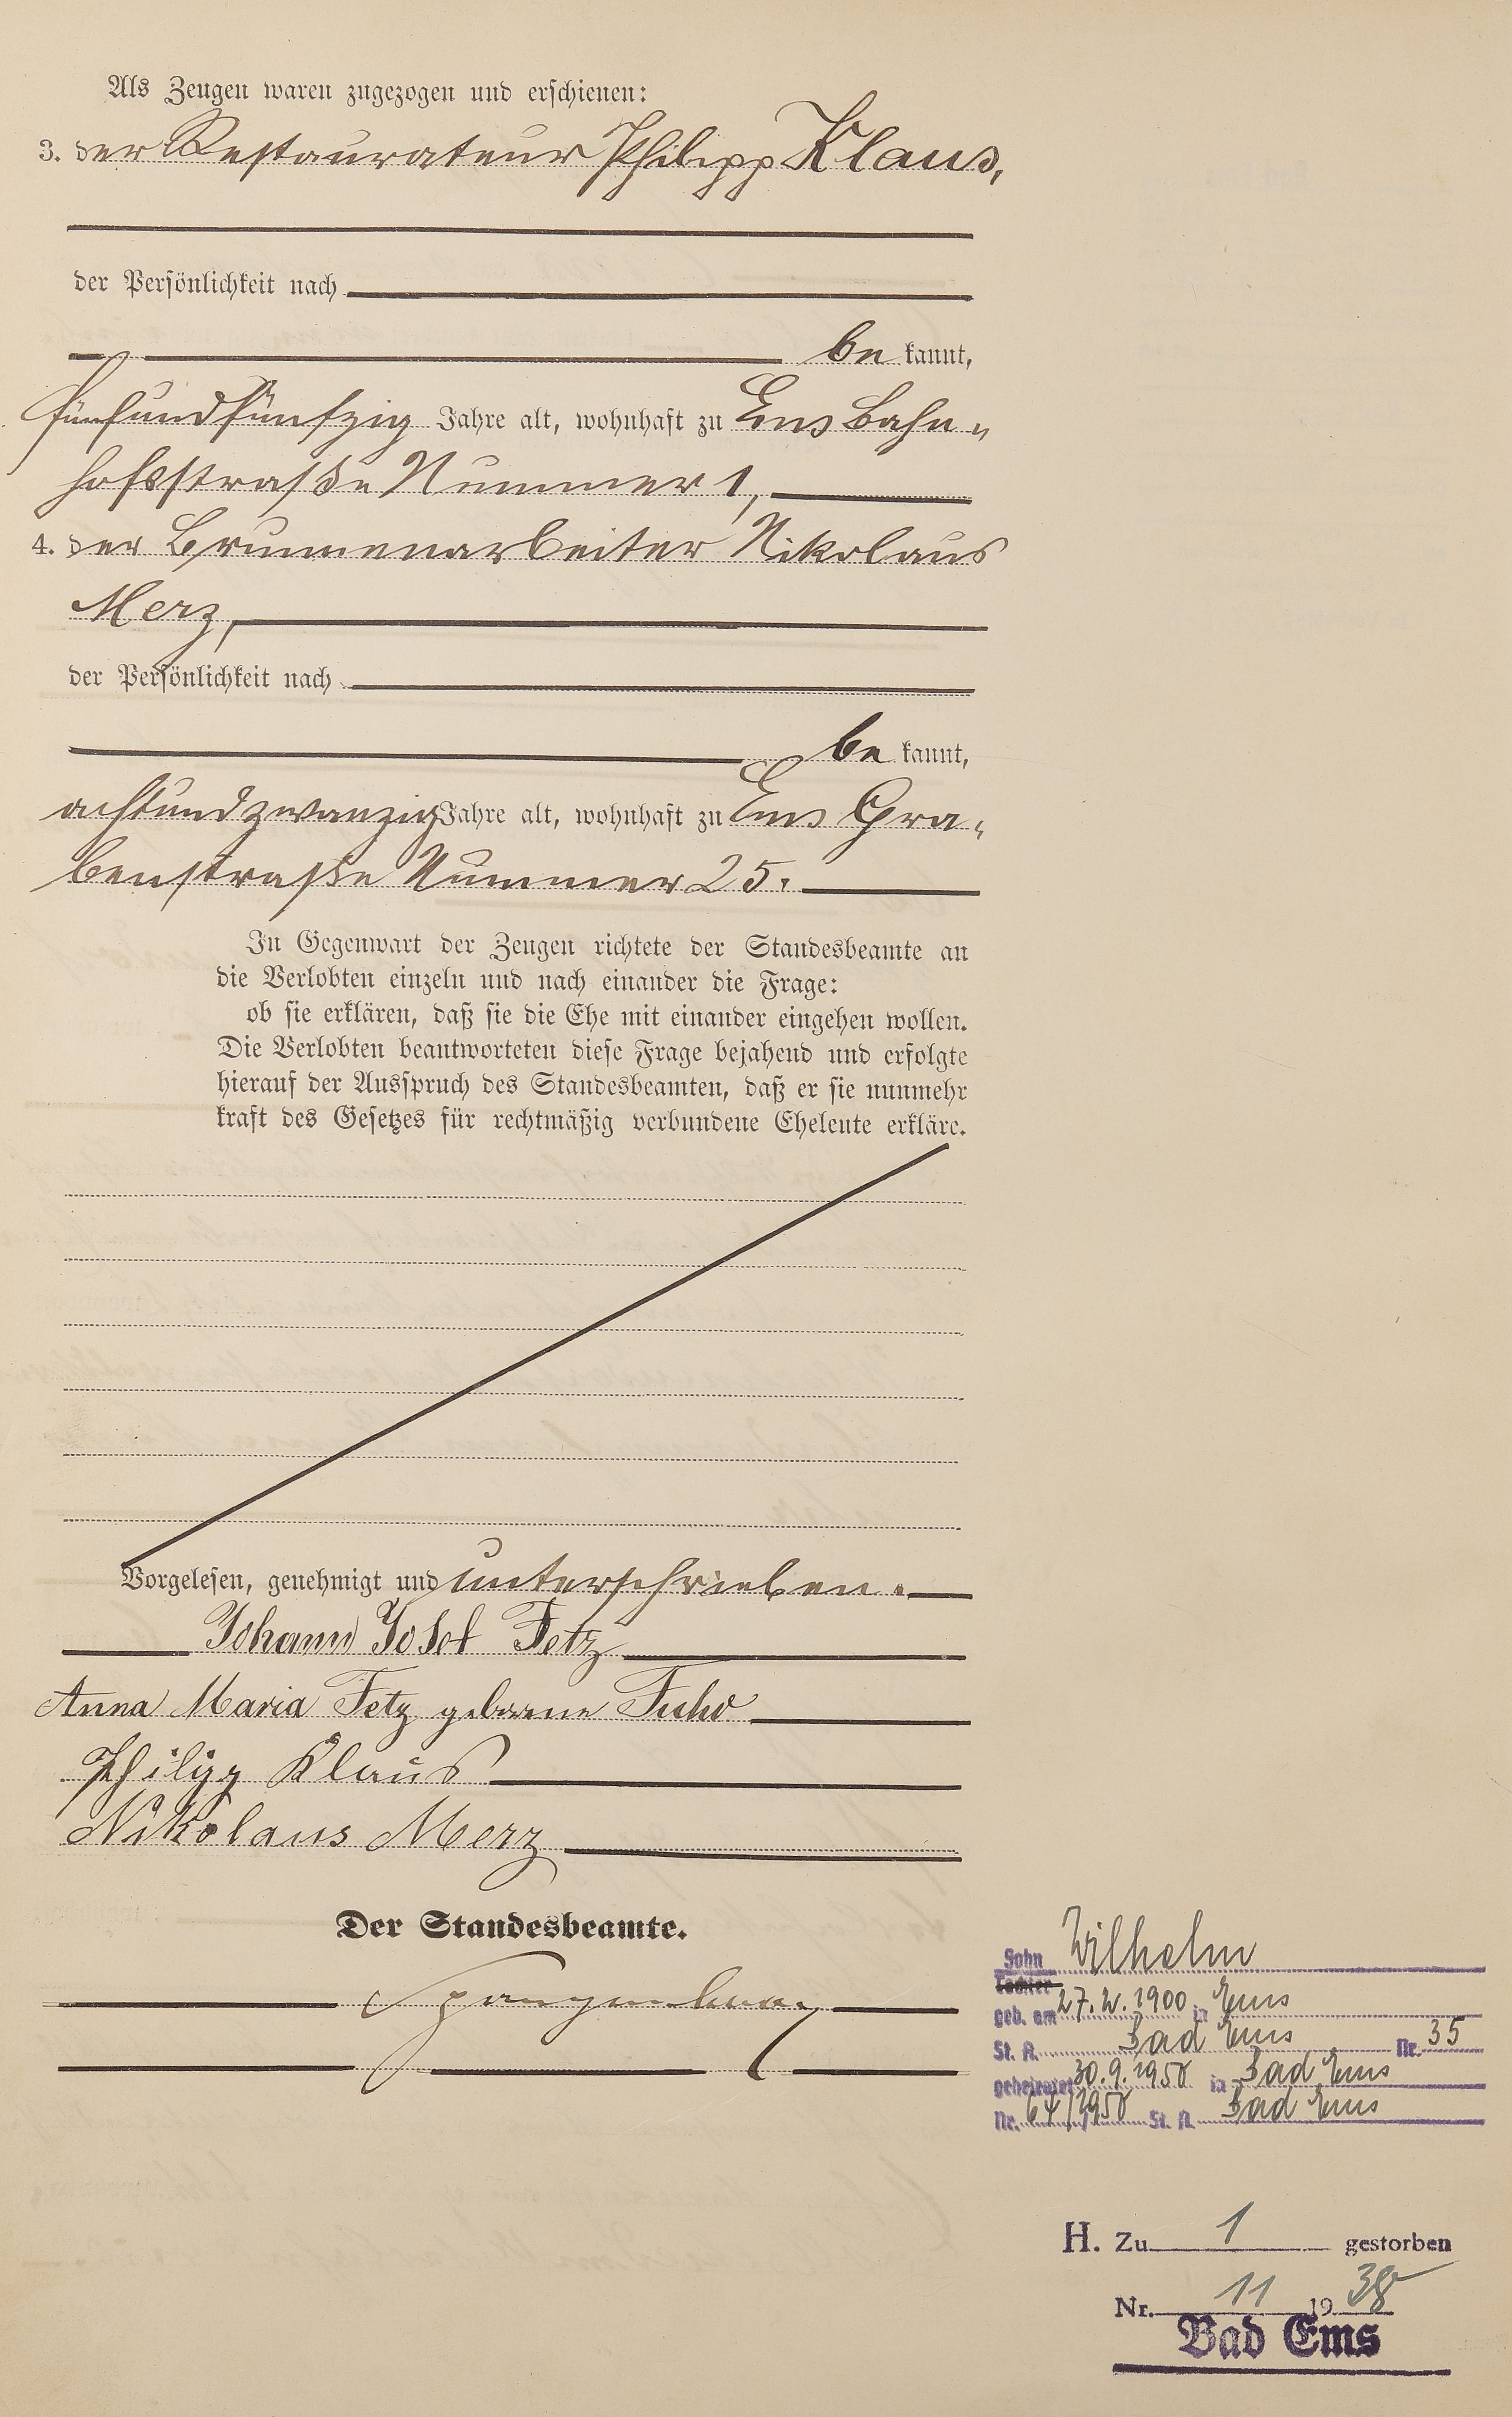 Als Zeugen waren zugezogen und erschienen:
3. der Restaurateur Philipp Klaus,
der Persönlichkeit nach
be kannt,
fünfundfünfzig Jahre alt, wohnhaft zu Ems Bahn-
hofsstraße Nummer 1,
4. der Brunnenarbeiter Nikolaus
Merz,
der Persönlichkeit nach
be kannt,
achtundzwanzig Jahre alt, wohnhaft zu Ems Gra-
benstraße Nummer 25.
In Gegenwart der Zeugen richtete der Standesbeamte an
die Verlobten einzeln und nach einander die Frage:
ob sie erklären, daß sie die Ehe mit einander eingehen wollen.
Die Verlobten beantworteten diese Frage bejahend und erfolgte
hierauf der Ausspruch des Standesbeamten, daß er sie nunmehr
kraft des Gesetzes für rechtmäßig verbundene Eheleute erkläre.
Vorgelesen, genehmigt und unterschrieben.
Johann Josef Fetz
Anna Maria Fetz geborene
Philipp Klaus
Nikolaus Merz
Der Standesbeamte.
Sohn Wilhelm
Tochter
geb. am 27.2.1900 in Ems
St. A. Bad Ems Nr. 35
geheiratet 30.9.1950 in Bad Ems
Nr. 64/1950 St. A. Bad Ems
H. Zu 1 gestorben
Nr. 11 19 38
Bad Ems